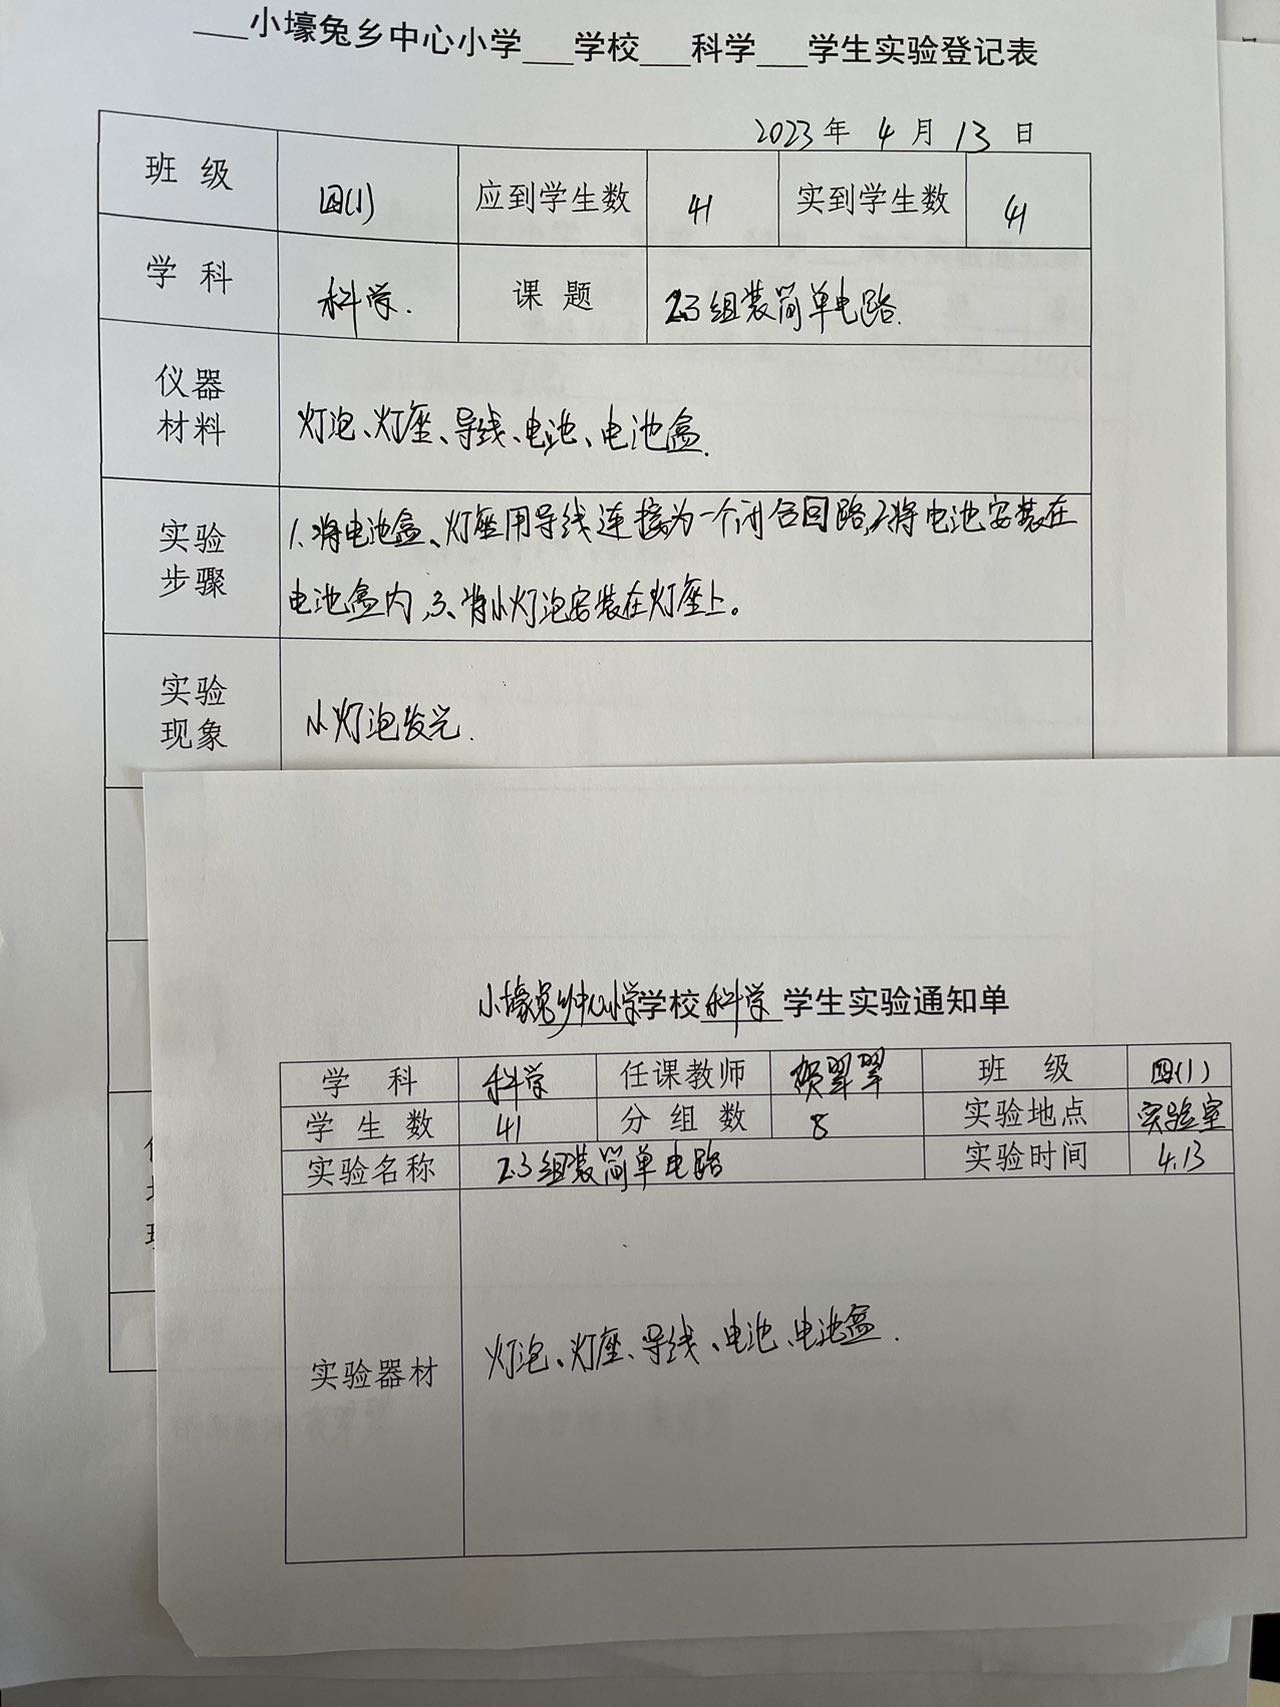 ___小壕兔乡中心小学___学校___科学___学生实验登记表
2023年 4月13日
班 级 四(1) 应到学生数 41 实到学生数 41
学 科 科学. 课 题 2.3组装简单电路.
仪器
材料
灯泡、灯座、导线、电池、电池盒.
实验
步骤
1、将电池盒、灯座用导线连接为一个闭合回路,2、将电池安装在
电池盒内,3、将小灯泡安装在灯座上。
实验
现象
小灯泡发光.
小壕兔乡中心小学学校科学学生实验通知单
学 科 科学 任课教师 贺翠翠 班 级 四(1)
学 生 数 41 分 组 数 8 实验地点 实验室
实验名称 2.3组装简单电路 实验时间 4.13
实验器材 灯泡、灯座、导线、电池、电池盒.